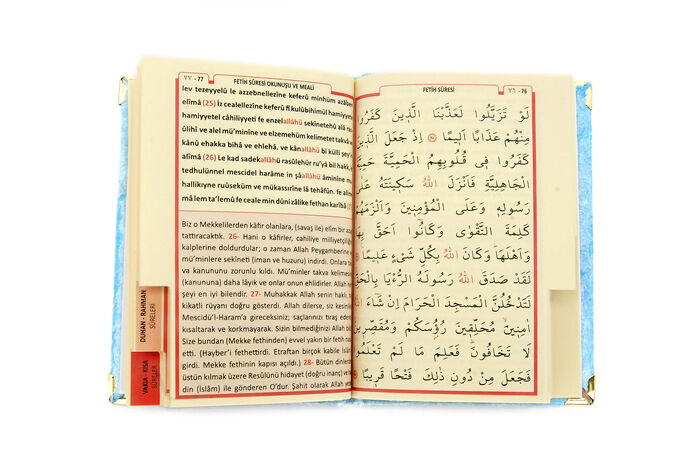 ٧٧ - 77
FETİH SÛRESİ OKUNUŞU VE MEALİ
lev tezeyyelû le azzebnellezîne keferû minhüm azâben
elîmâ (25) İz cealellezîne keferû fî kulûbihimül hamiyyete
hamiyyetel câhiliyyeti fe enzelallâhü sekînetehû alâ
ûlihî ve alel mü'minîne ve elzemehüm kelimetet takvâ
kânû ehakka bihâ ve ehlehâ. ve kânallâhü bi külli şey'in
(26) Le kad sadekallâhü rasûlehür ru'yâ bil hakk
tedhulünnel mescidel harâme in şâallâhü âminîne
hallikıyne ruûseküm ve mükassırîne lâ tehâfûn. fe alime
mâ lem ta'lemû fe ceale min dûni zâlike fethan karîbâ
Biz o Mekkelilerden kâfir olanlara, (savaş ile) elîm bir azap
tattıracaktık. 26- Hani o kâfirler, cahiliye milliyetçiliği
kalplerine doldurdular; o zaman Allah Peygamberine
mü'minlere sekîneti (iman ve huzuru) indirdi. Onlara tak
va kanununu zorunlu kıldı. Mü'minler takva kelimesine
(kanununa) daha lâyık ve onlar onun ehilidirler. Allah her
şeyi en iyi bilendir. 27- Muhakkak Allah senin haklı,
kikatli rüyanı doğru gösterdi. Allah dilerse, siz emin
Mescidü'l-Haram'a gireceksiniz; saçlarınızı tıraş ederek
kısaltarak ve korkmayarak. Sizin bilmediğinizi Allah bilir
Size bundan (Mekke fethinden) evvel yakın bir fetih
(Hayber'i fethettirdi. Etraftan birçok kabile İslâm'a
girdi. Mekke fethinin kapısı açıldı.) 28- Bütün dinlerden
üstün kılmak üzere Resûlünü hidayet (doğru inanç) ve hak
din (İslâm) ile gönderen O'dur. Şahit olarak Allah yeter
DUHAN - RAHMAN
SÛRELERİ
VAKIA - KISA
SÛRELER
FETİH SÛRESİ
٧٦ - 76
لَوْ تَزَيَّلُوا لَعَذَّبْنَا الَّذ۪ينَ كَفَرُوا
مِنْهُمْ عَذَابًا اَل۪يمًا ﴿٢٥﴾ اِذْ جَعَلَ الَّذ۪ينَ
كَفَرُوا ف۪ي قُلُوبِهِمُ الْحَمِيَّةَ حَمِيَّةَ
الْجَاهِلِيَّةِ فَاَنْزَلَ اللّٰهُ سَك۪ينَتَهُ عَلٰى
رَسُولِه۪ وَعَلَى الْمُؤْمِن۪ينَ وَاَلْزَمَهُمْ
كَلِمَةَ التَّقْوٰى وَكَانُوا اَحَقَّ بِهَا
وَاَهْلَهَا وَكَانَ اللّٰهُ بِكُلِّ شَيْءٍ عَل۪يمًا
لَقَدْ صَدَقَ اللّٰهُ رَسُولَهُ الرُّءْيَا بِالْحَقِّ
لَتَدْخُلُنَّ الْمَسْجِدَ الْحَرَامَ اِنْ شَاءَ اللّٰهُ
اٰمِن۪ينَ مُحَلِّق۪ينَ رُؤُ۫سَكُمْ وَمُقَصِّر۪ينَ
لَا تَخَافُونَ فَعَلِمَ مَا لَمْ تَعْلَمُوا
فَجَعَلَ مِنْ دُونِ ذٰلِكَ فَتْحًا قَر۪يبًا